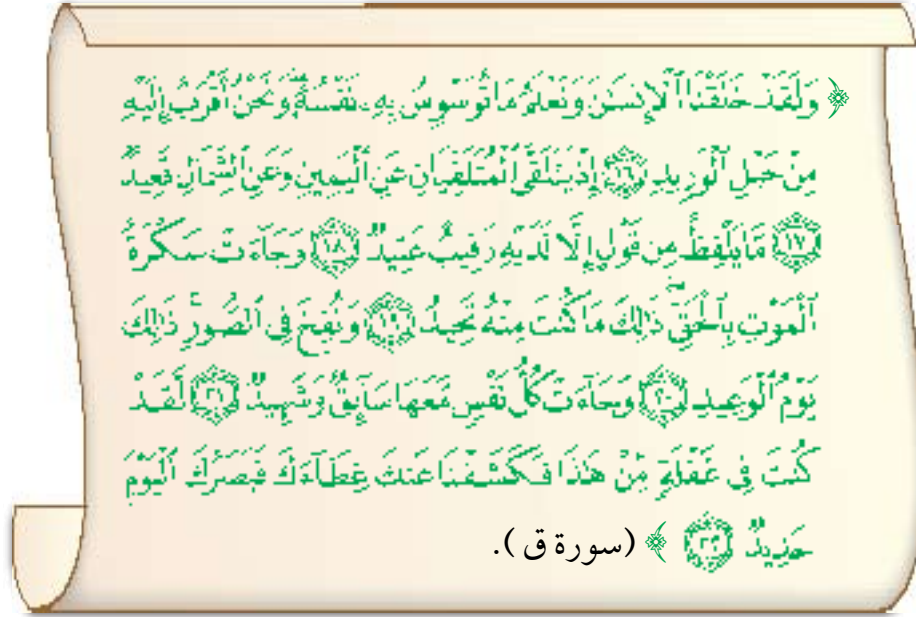 ﴿ وَلَقَدْ خَلَقْنَا ٱلْإِنسَـٰنَ وَنَعْلَمُ مَا تُوَسْوِسُ بِهِۦ نَفْسُهُۥ ۖ وَنَحْنُ أَقْرَبُ إِلَيْهِ
مِنْ حَبْلِ ٱلْوَرِيدِ ١٦ إِذْ يَتَلَقَّى ٱلْمُتَلَقِّيَانِ عَنِ ٱلْيَمِينِ وَعَنِ ٱلشِّمَالِ قَعِيدٌ
١٧ مَّا يَلْفِظُ مِن قَوْلٍ إِلَّا لَدَيْهِ رَقِيبٌ عَتِيدٌ ١٨ وَجَآءَتْ سَكْرَةُ
ٱلْمَوْتِ بِٱلْحَقِّ ۖ ذَٰلِكَ مَا كُنتَ مِنْهُ تَحِيدُ ١٩ وَنُفِخَ فِى ٱلصُّورِ ۚ ذَٰلِكَ
يَوْمُ ٱلْوَعِيدِ ٢٠ وَجَآءَتْ كُلُّ نَفْسٍ مَّعَهَا سَآئِقٌ وَشَهِيدٌ ٢١ لَّقَدْ
كُنتَ فِى غَفْلَةٍ مِّنْ هَـٰذَا فَكَشَفْنَا عَنكَ غِطَآءَكَ فَبَصَرُكَ ٱلْيَوْمَ
حَدِيدٌ ٢٢ ﴾ (سورة ق).